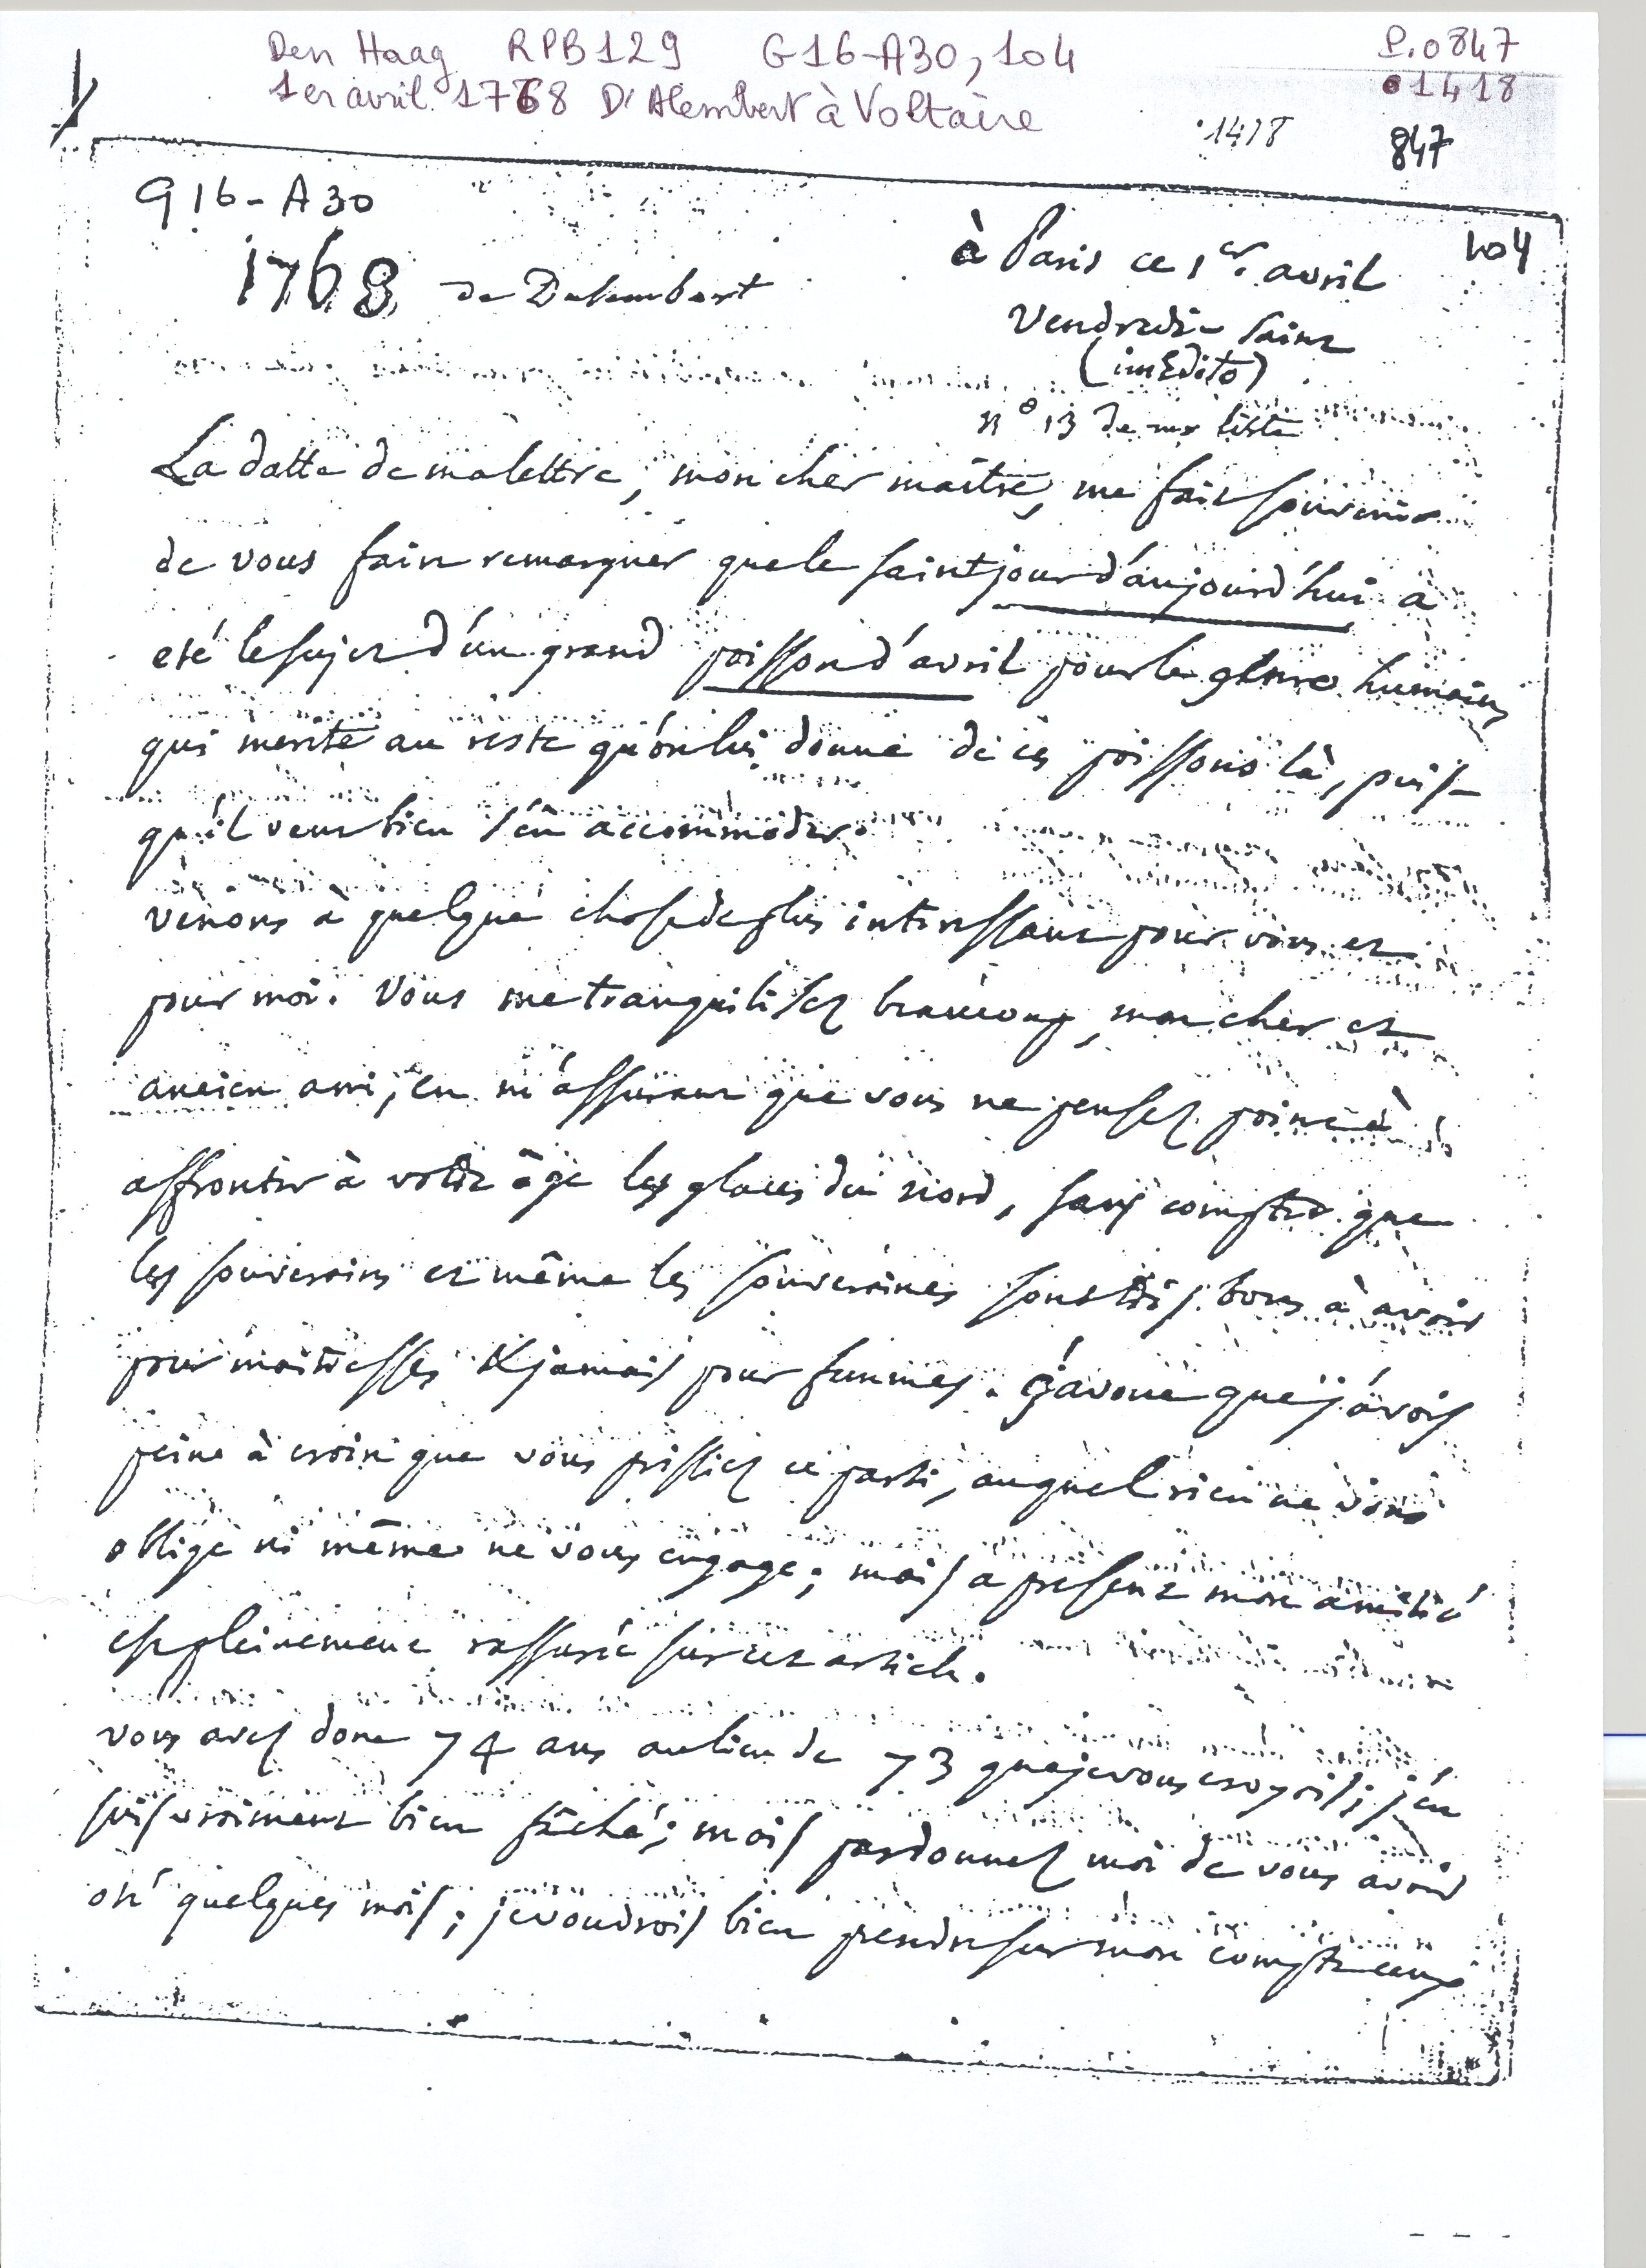 Den Haag RPB129 G16-A30, 104 P.0847
1er avril 1768 D'Alembert à Voltaire 01418
1418 847
G16-A30
104
1768 de Dalembert
à Paris ce 1er. avril
Vendredi-saint
(inédite)
n° 13 de ma liste
La datte de ma lettre, mon cher maitre, me fait souvenir
de vous faire remarquer que le saint jour d'aujourd'hui a
eté le sujet d'un grand poisson d'avril pour le genre humain,
qui merite au reste qu'on lui donne de ces poissons là, puis-
qu'il veut bien s'en accommoder.
venons à quelque chose de plus interessant pour vous et
pour moi. Vous me tranquilisez beaucoup, mon cher et
ancien ami, en m'assurant que vous ne pensez point à
affronter à votre âge les glaces du nord, sans compter que
les souverains et même les souveraines sont très bons à avoir
pour maitresses & jamais pour femmes. J'avoue que j'avois
peine à croire que vous prissiez ce parti, auquel rien ne vous
oblige ni même ne vous engage; mais à present mon amitié
est pleinement rassurée sur cet article.
vous avez donc 74 ans au lieu de 73 que je vous croyois; j'en
suis vraiment bien fâché; mais pardonnez moi de vous avoir
oté quelques mois; je voudrois bien prendre sur mon compte ceux